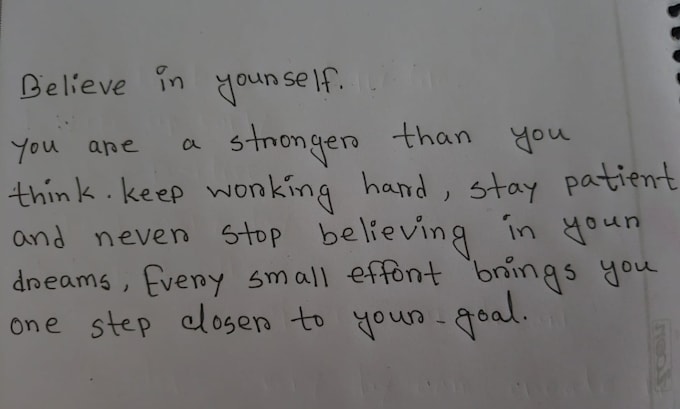 Believe in yourself.
You are a stronger than you
think. keep working hard, stay patient
and never stop believing in your
dreams, Every small effort brings you
one step closer to your - goal.